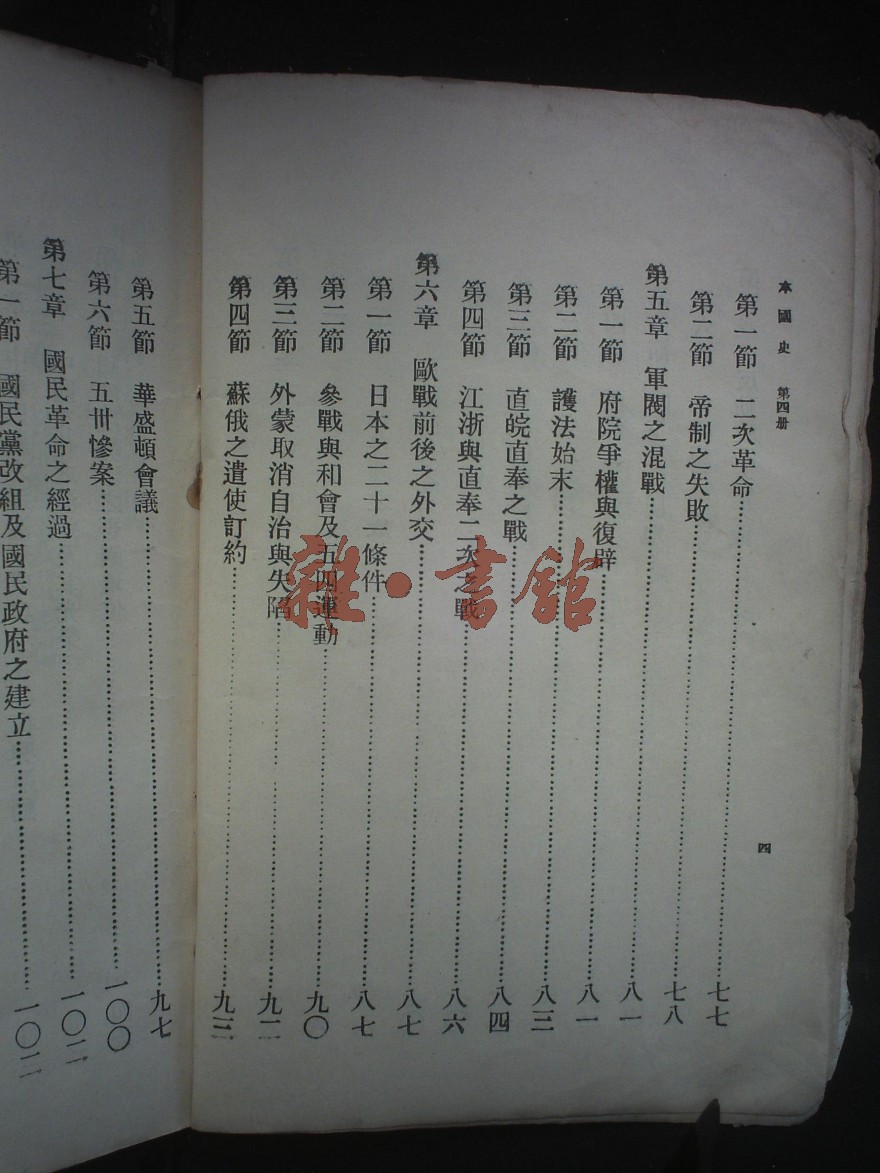 本國史 第四册
第一節 二次革命……七七
第二節 帝制之失敗……七八
第五章 軍閥之混戰……八一
第一節 府院爭權與復辟……八一
第二節 護法始末……八三
第三節 直皖直奉之戰……八四
第四節 江浙與直奉二次之戰……八六
第六章 歐戰前後之外交……八七
第一節 日本之二十一條件……八七
第二節 參戰與和會及五四運動……九〇
第三節 外蒙取消自治與失陷……九二
第四節 蘇俄之遣使訂約……九三
四
第五節 華盛頓會議……九七
第六節 五卅慘案……一〇〇
第七章 國民革命之經過……一〇二
第一節 國民黨改組及國民政府之建立……一〇二
雜·書館